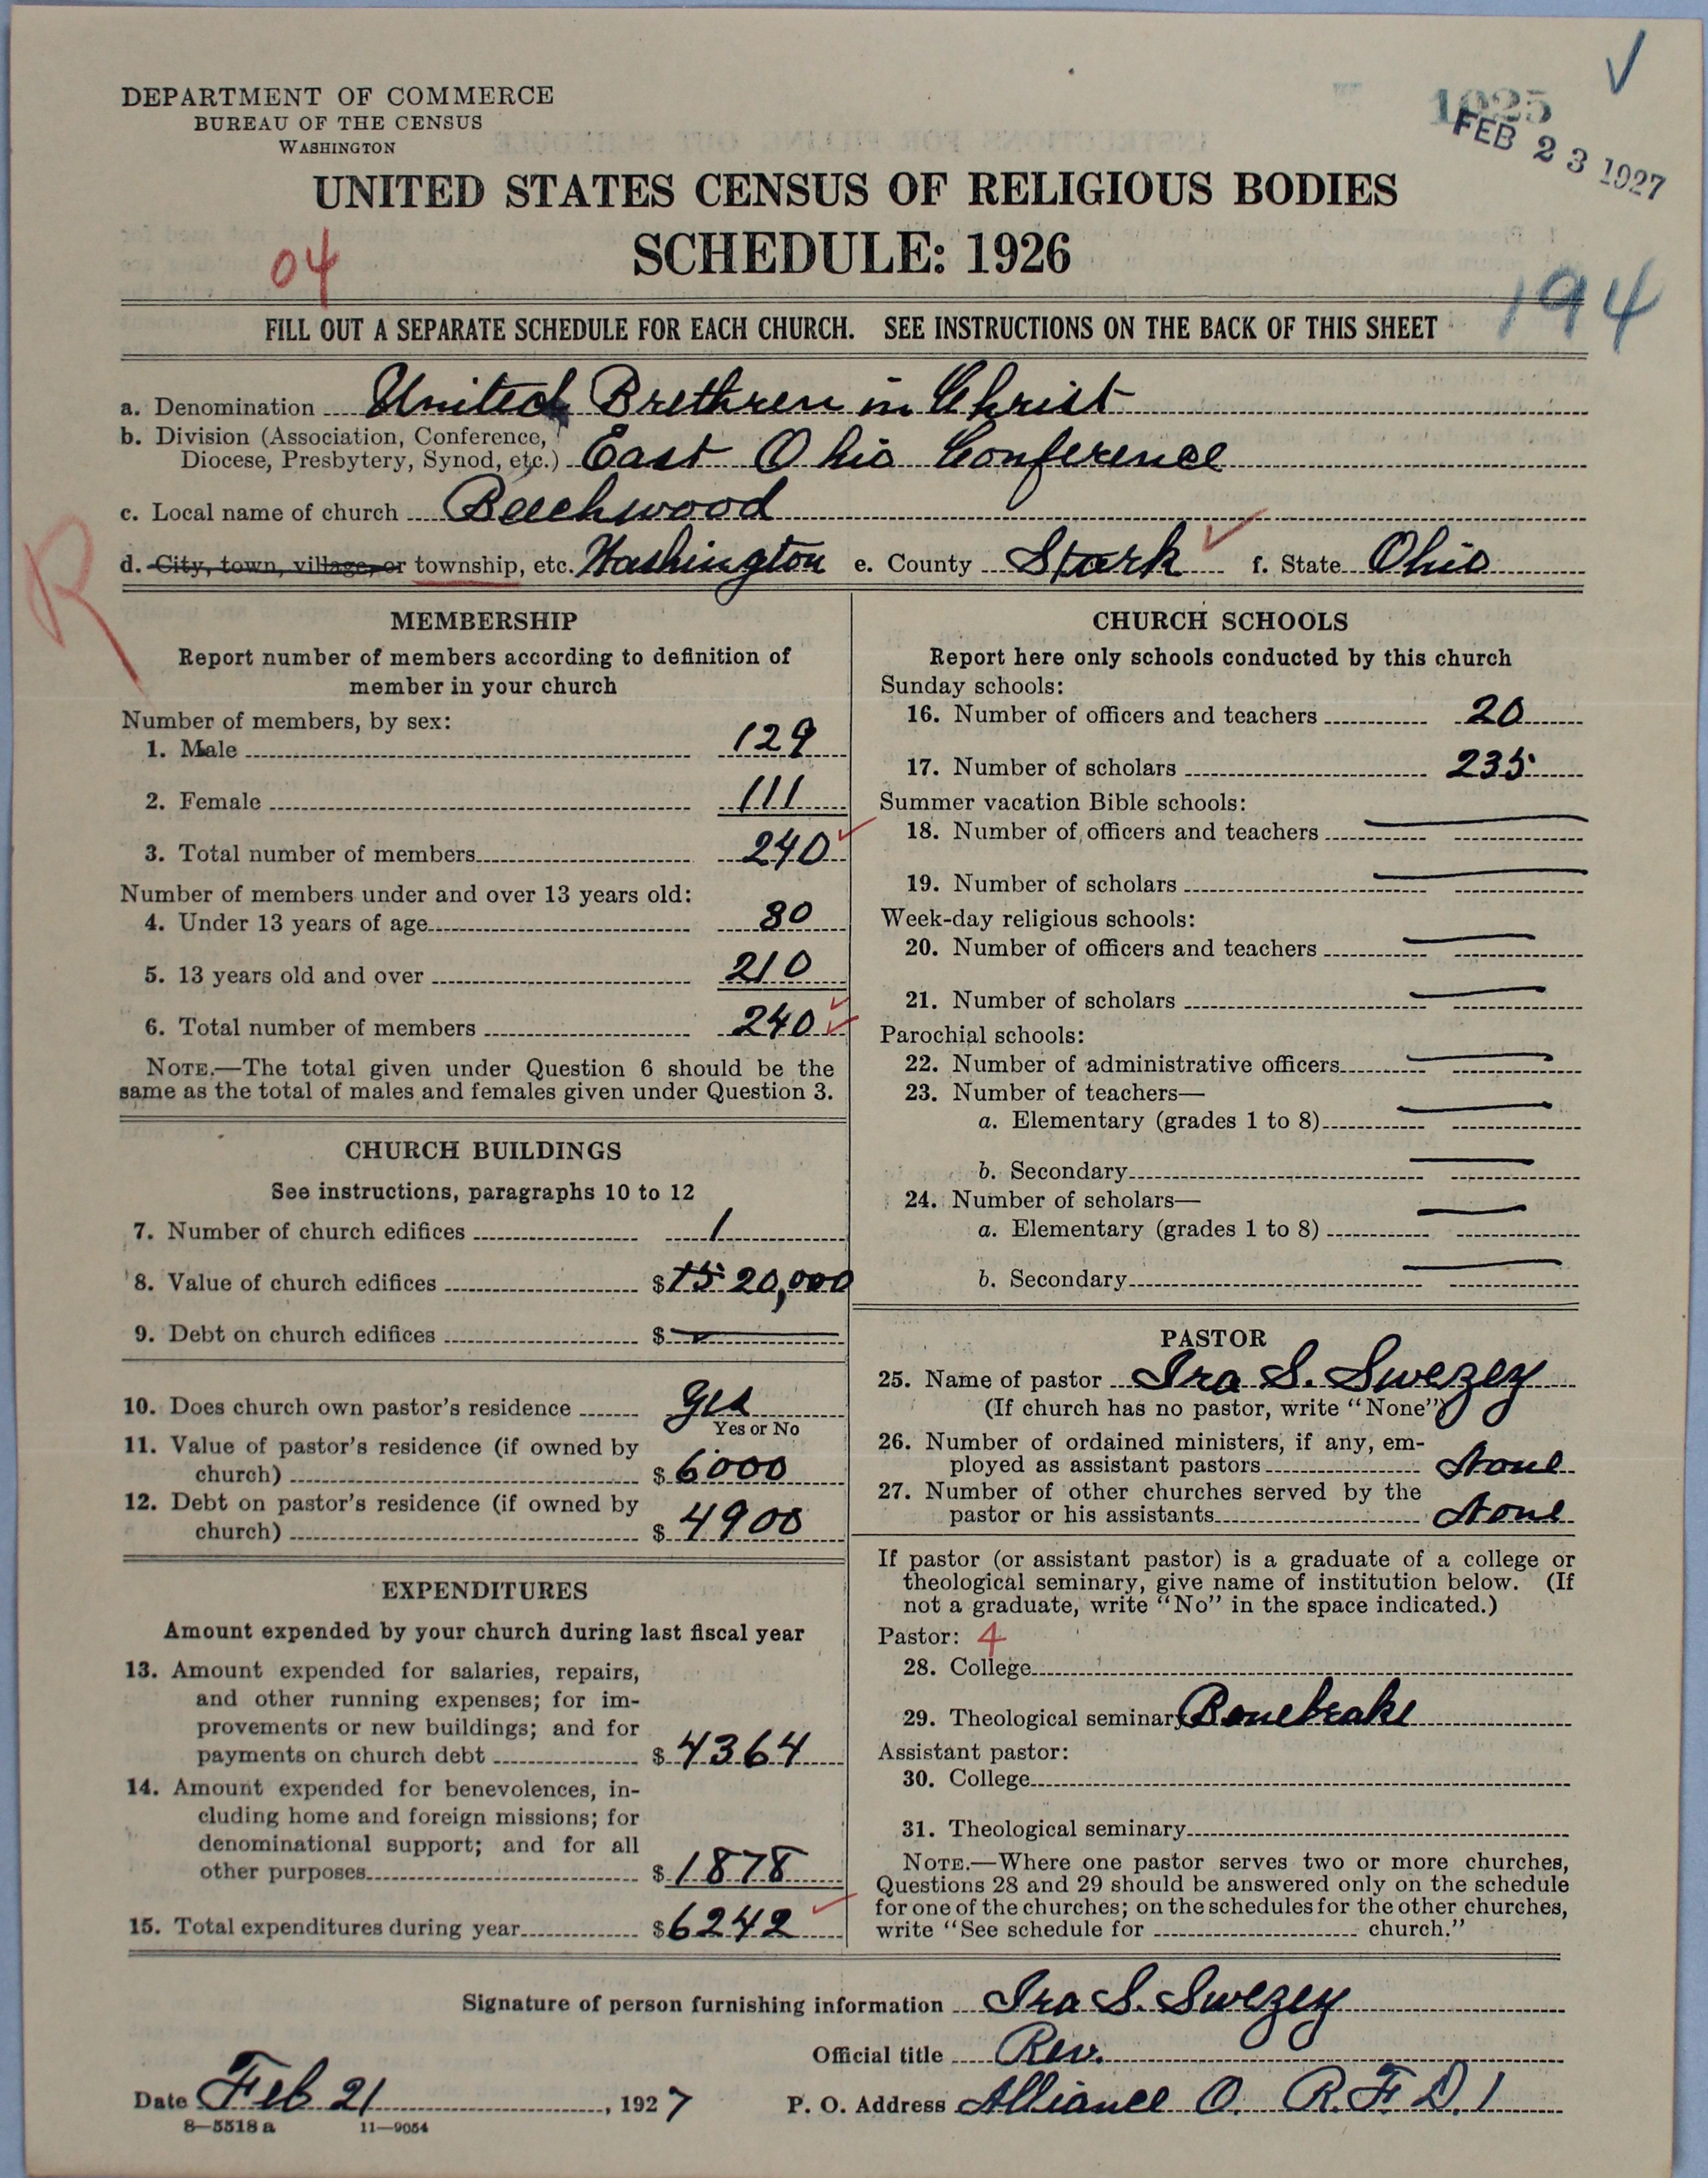 DEPARTMENT OF COMMERCE
BUREAU OF THE CENSUS
WASHINGTON
1025
FEB 23 1927
UNITED STATES CENSUS OF RELIGIOUS BODIES
SCHEDULE: 1926
04
194
FILL OUT A SEPARATE SCHEDULE FOR EACH CHURCH. SEE INSTRUCTIONS ON THE BACK OF THIS SHEET
a. Denomination United Brethren in Christ
b. Division (Association, Conference,
Diocese, Presbytery, Synod, etc.) East Ohio Conference
c. Local name of church Beechwood
d. City, town, village, or township, etc. Washington e. County Stark f. State Ohio
R
MEMBERSHIP
Report number of members according to definition of
member in your church
Number of members, by sex:
1. Male 129
2. Female 111
3. Total number of members 240
Number of members under and over 13 years old:
4. Under 13 years of age 30
5. 13 years old and over 210
6. Total number of members 240
NOTE.—The total given under Question 6 should be the
same as the total of males and females given under Question 3.
CHURCH BUILDINGS
See instructions, paragraphs 10 to 12
7. Number of church edifices 1
8. Value of church edifices $15 20,000
9. Debt on church edifices $
10. Does church own pastor's residence yes
Yes or No
11. Value of pastor's residence (if owned by
church) $ 6000
12. Debt on pastor's residence (if owned by
church) $ 4900
EXPENDITURES
Amount expended by your church during last fiscal year
13. Amount expended for salaries, repairs,
and other running expenses; for im-
provements or new buildings; and for
payments on church debt $ 4364
14. Amount expended for benevolences, in-
cluding home and foreign missions; for
denominational support; and for all
other purposes $ 1878
15. Total expenditures during year $ 6242
CHURCH SCHOOLS
Report here only schools conducted by this church
Sunday schools:
16. Number of officers and teachers 20
17. Number of scholars 235
Summer vacation Bible schools:
18. Number of officers and teachers
19. Number of scholars
Week-day religious schools:
20. Number of officers and teachers
21. Number of scholars
Parochial schools:
22. Number of administrative officers
23. Number of teachers—
a. Elementary (grades 1 to 8)
b. Secondary
24. Number of scholars—
a. Elementary (grades 1 to 8)
b. Secondary
PASTOR
25. Name of pastor Ira S. Swezey
(If church has no pastor, write "None")
26. Number of ordained ministers, if any, em-
ployed as assistant pastors None
27. Number of other churches served by the
pastor or his assistants None
If pastor (or assistant pastor) is a graduate of a college or
theological seminary, give name of institution below. (If
not a graduate, write "No" in the space indicated.)
Pastor: 4
28. College
29. Theological seminary Bonebrake
Assistant pastor:
30. College
31. Theological seminary
NOTE.—Where one pastor serves two or more churches,
Questions 28 and 29 should be answered only on the schedule
for one of the churches; on the schedules for the other churches,
write "See schedule for church."
Signature of person furnishing information Ira S. Swezey
Official title Rev.
Date Feb 21, 1927 P. O. Address Alliance O. R.F.D. 1
8—5518 a 11—9054